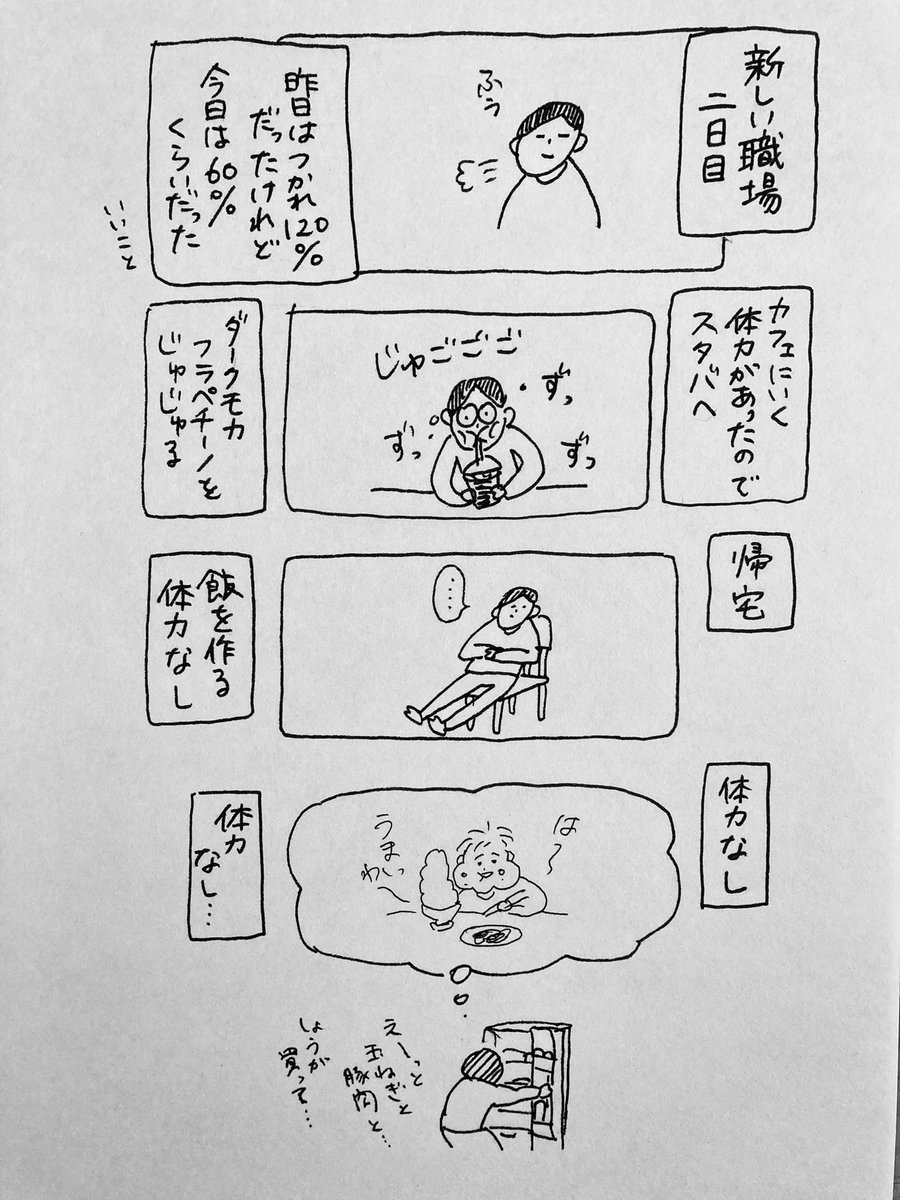 新しい職場
二日目
ふぅ
昨日はつかれ120%
だったけれど
今日は60%
くらいだった
いいこと
カフェにいく
体力があったので
スタバへ
じゅごごご
ずっ
ずっ
ずっ
ダークモカ
フラペチーノを
じゅじゅる
帰宅
・・・・
飯を作る
体力なし
体力なし
は〜
うまいっ
わ
体力
なし…
えーっと
玉ねぎと
豚肉と…
しょうが
買って…